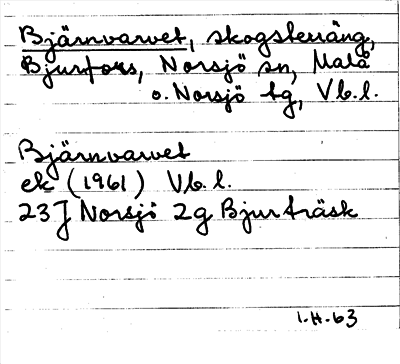 Bjärnvarvet, skogsterräng,
Bjurfors, Norsjö sn, Malå
o. Norsjö tg, Vb.l.
Bjärnvarvet
ek (1961) Vb.l.
23J Norsjö 2g Bjurträsk
1.H.63